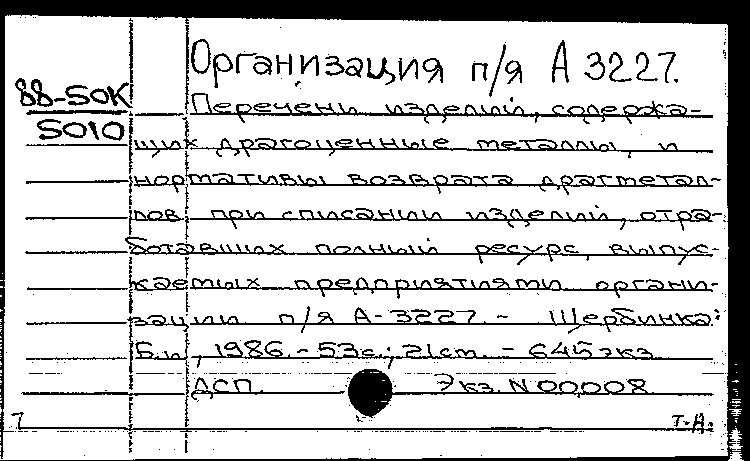 Организация п/я А 3227.
88-50К
5010
Перечени изделий, содержа-
щих драгоценные металлы, и
нормативы возврата драгметал-
лов при списании изделий, отра-
ботавших полный ресурс, выпус-
каемых предприятиями органи-
зации п/я А-3227. - Щербинка:
Б.и, 1986. - 53с.; 21см. - 645экз
ДСП. Экз. N 00008
7 т-А.